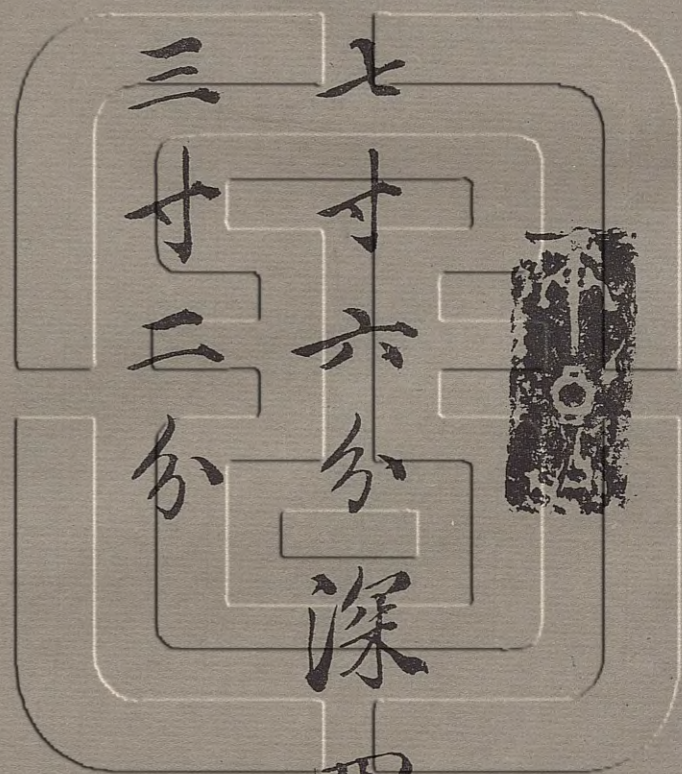 七寸六分深四
三寸二分